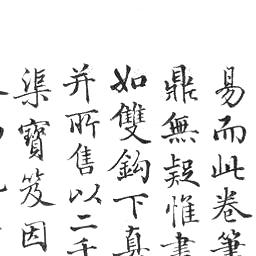 易而此卷筆
鼎無疑惟書
如雙鈎下真
并所售以二千
渠寶笈因